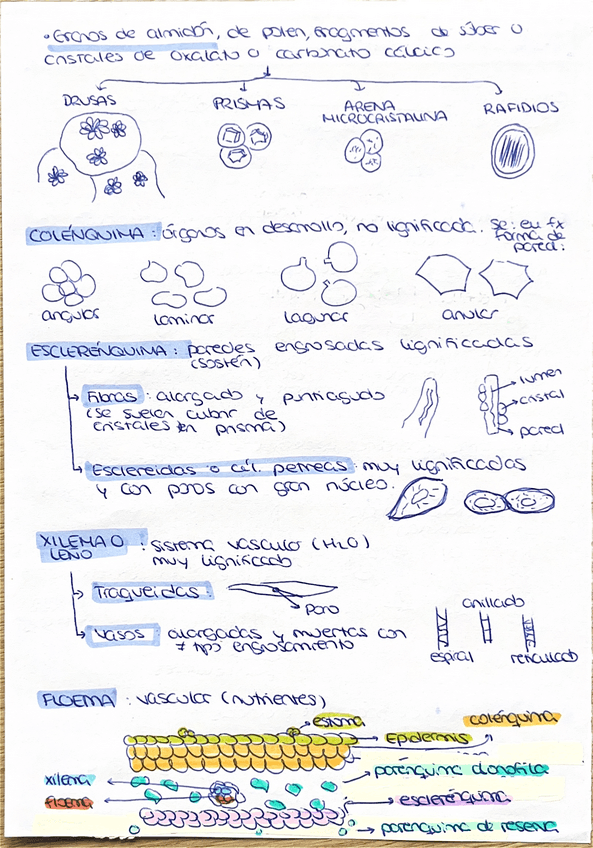 • Granos de almidón, de polen, fragmentos de súber o
cristales de oxalato o carbonato cálcico
DRUSAS
PRISMAS
ARENA
MICROCRISTALINA
RAFIDIOS
COLÉNQUIMA: órganos en desarrollo, no lignificada. Se: eu fx
forma de
pared:
angular
laminar
lagunar
anular
ESCLERÉNQUIMA: paredes engrosadas lignificadas
(sostén)
Fibras: alargado y puntiagudo
(se suelen cubrir de
cristales en prisma)
lumen
cristal
pared
Esclereidas o cél. pétreas: muy lignificadas
y con poros con gran núcleo.
XILEMA O
LEÑO
: sistema vascular (H2O)
muy lignificado
Traqueidas:
poro
Vasos: alargadas y muertas con
≠ tipo engrosamiento
anillado
espiral
reticulado
FLOEMA: vascular (nutrientes)
estoma
colénquima
Epidermis
xilema
parénquima clorofílico
floema
esclerénquima
parénquima de reserva